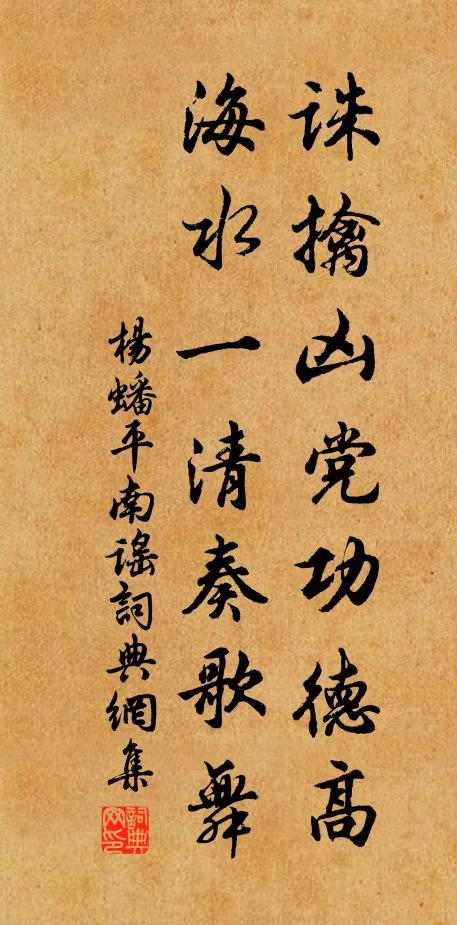 诛擒凶党功德高
海水一清奏歌舞
楊蟠平南谣詞典網集
詞典网印